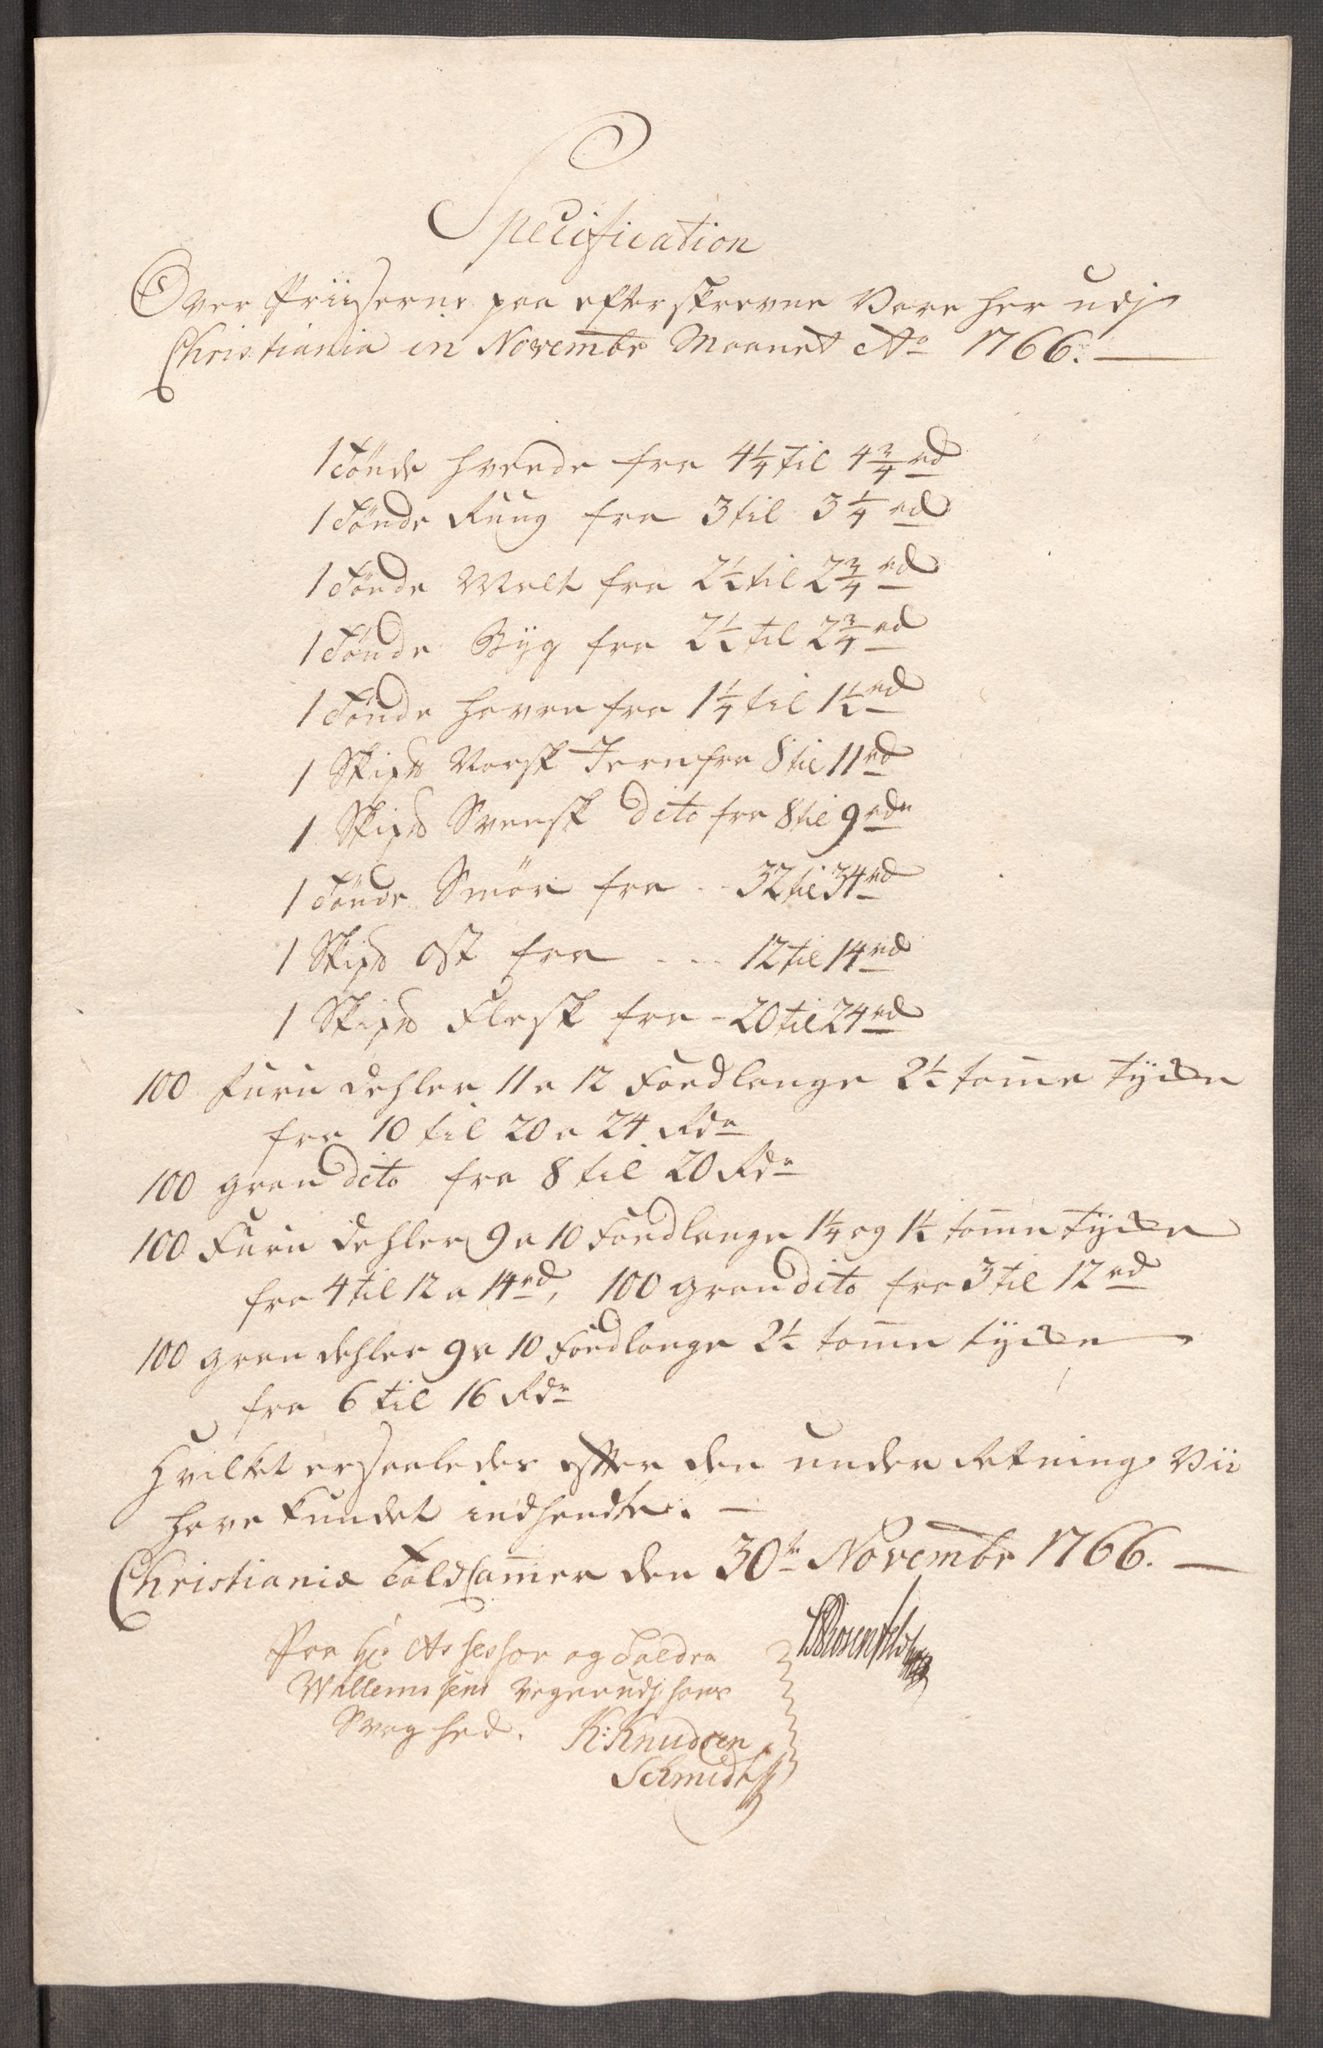 Specification
Over Priiserne paa efterskrevne Vare her udj
Christiania in Novembr Maanet Ao 1766.
1 Tönde Hvede fra 4¼ til 4¾ rd
1 Tönde Rug fra 3 til 3¼ rd
1 Tönde Malt fra 2½ til 2¾ rd
1 Tönde Byg fra 2½ til 2¾ rd
1 Tönde Havre fra 1¼ til 1½ rd
1 Skipd Norsk Jern fra 8 til 11 rd
1 Skipd Svensk dito fra 8 til 9 rdr
1 Tönde Smör fra - - 32 til 34 rd
1 Skipd Ost fra - - - 12 til 14 rd
1 Skipd Flesk fra - 20 til 24 rd
100 Furu Dehler 11 a 12 Foed lange 2½ tomme tycke
fra 10 til 20 a 24 Rdr
100 gran dito fra 8 til 20 Rdr
100 Furu Dehler 9 a 10 Foed lange 1¼ og 1½ tomme tycke
fra 4 til 12 a 14 rd, 100 gran dito fra 3 til 12 rd
100 gran dehler 9 a 10 Foed lange 2½ tomme tycke
fra 6 til 16 Rdr
Hvilket er saaledes efter den underretning Vii
have kundet indhendte.
Christiania Toldcammer den 30te Novembr 1766.
Paa Hr Assessor og Tolder
Willemsens vegne udj hans
Svaghed. K: Knudsen
Schmidt